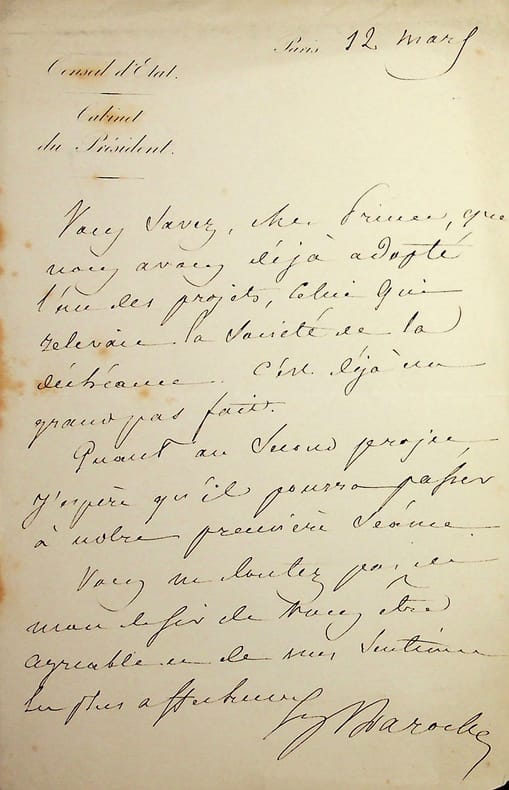 Paris 12 mars
Conseil d'Etat.
Cabinet
du Président.
Vous savez, cher Prince, que
nous avons déjà adopté
l'un des projets, celui qui
relevait la Société de la
déchéance. C'est déjà un
grand pas fait.
Quant au second projet,
j'espère qu'il pourra passer
à notre première séance.
Vous ne doutez pas de
mon désir de vous être
agréable et de mes sentimens
les plus affectueux
J Baroche